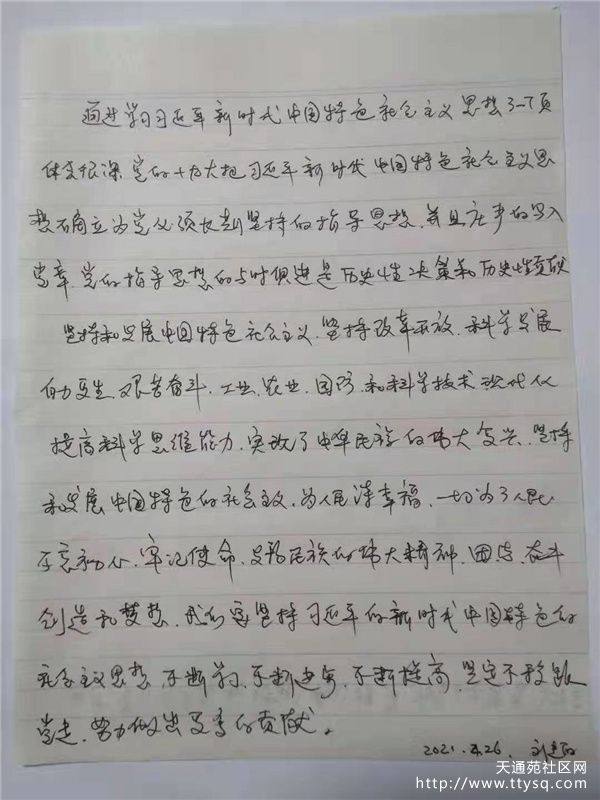 通过学习习近平新时代中国特色社会主义思想30项
体会很深,党的十九大把习近平新时代中国特色社会主义思
想确立为党必须长期坚持的指导思想,并且庄严的写入
党章,党的指导思想的与时俱进是历史性决策和历史性贡献
坚持和发展中国特色社会主义,坚持改革开放,科学发展
自力更生,艰苦奋斗,工业,农业,国防,和科学技术现代化
提高科学思维能力,实现了中华民族的伟大复兴,坚持
和发展中国特色的社会主义,为人民谋幸福,一切为了人民
不忘初心,牢记使命,发扬民族的伟大精神,团结,奋斗
创造和梦想,我们要坚持习近平的新时代中国特色的
社会主义思想,不断学习,不断进步,不断提高,坚定不移跟
党走,努力做出更多的贡献。
2021.4.26.
天通苑社区网
http://www.ttysq.com